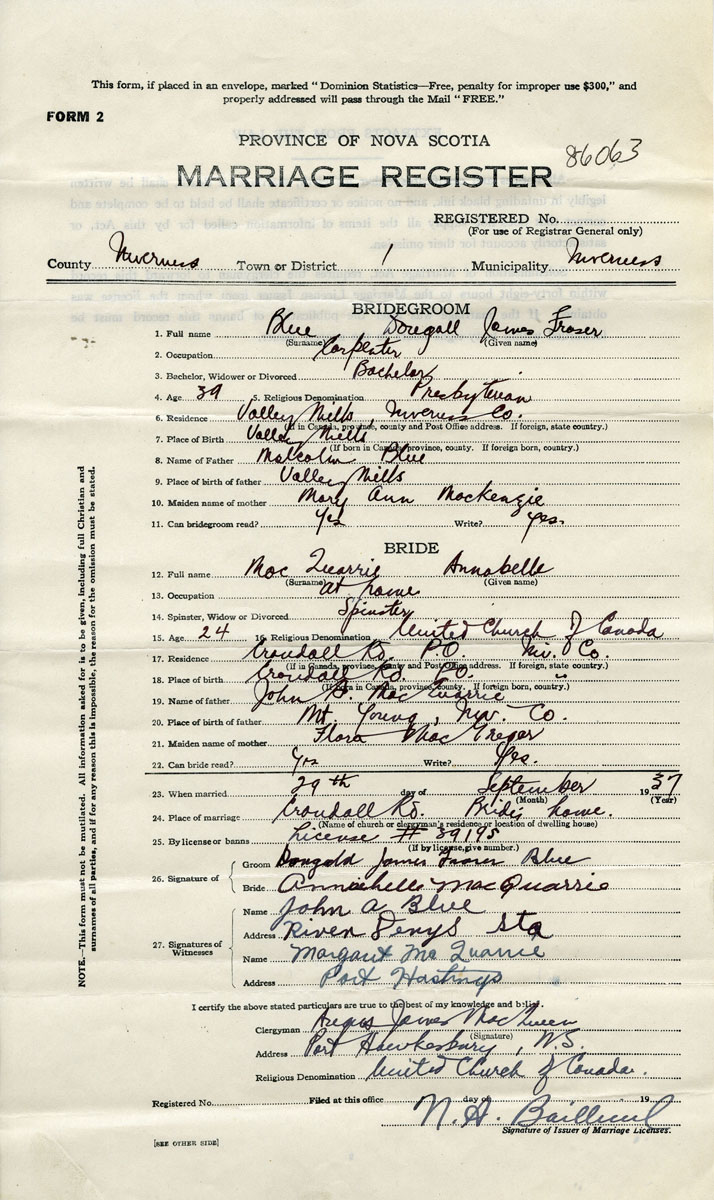 This form, if placed in an envelope, marked "Dominion Statistics—Free, penalty for improper use $300," and
properly addressed will pass through the Mail "FREE."
FORM 2
PROVINCE OF NOVA SCOTIA
86063
MARRIAGE REGISTER
REGISTERED No.
(For use of Registrar General only)
County Inverness Town or District 1 Municipality Inverness
BRIDEGROOM
1. Full name Blue Dougall James Fraser
(Surname) (Given name)
2. Occupation Carpenter
3. Bachelor, Widower or Divorced Bachelor
4. Age 39 5. Religious Denomination Presbyterian
6. Residence Valley Mills, Inverness Co.
(If in Canada, province, county and Post Office address. If foreign, state country.)
7. Place of Birth Valley Mills
(If born in Canada, province, county. If foreign born, country.)
8. Name of Father Malcolm Blue
9. Place of birth of father Valley Mills
10. Maiden name of mother Mary Ann MacKenzie
11. Can bridegroom read? Yes Write? Yes.
BRIDE
12. Full name Mac Quarrie Annabelle
(Surname) (Given name)
13. Occupation at home
14. Spinster, Widow or Divorced Spinster
15. Age 24 16. Religious Denomination United Church of Canada
17. Residence Crandall Rd. P.O. Inv. Co.
(If in Canada, province, county and Post Office address. If foreign, state country.)
18. Place of birth Crandall Rd. P.O. "
(If born in Canada, province, county. If foreign born, country.)
19. Name of father John Mac Quarrie
20. Place of birth of father Mt. Young, Inv. Co.
21. Maiden name of mother Flora MacGregor
22. Can bride read? Yes Write? Yes.
23. When married 29th day of September 1937
(Month) (Year)
24. Place of marriage Crandall Rd. Bride's home.
(Name of church or clergyman's residence or location of dwelling house)
25. By license or banns License # 39195
(If by license, give number.)
26. Signature of
Groom Dougald James Fraser Blue
Bride Annabelle MacQuarrie
27. Signatures of Witnesses
Name John A Blue
Address River Denys Sta
Name Margaret Mc Quarrie
Address Port Hastings
I certify the above stated particulars are true to the best of my knowledge and belief.
Clergyman Angus James MacQueen
(Signature)
Address Port Hawkesbury, N.S.
Religious Denomination United Church of Canada.
Registered No. Filed at this office day of 19
N. H.
Signature of Issuer of Marriage Licenses.
[SEE OTHER SIDE]
NOTE.—This form must not be mutilated. All information asked for is to be given, including full Christian and
surnames of all parties, and if for any reason this is impossible, the reason for the omission must be stated.